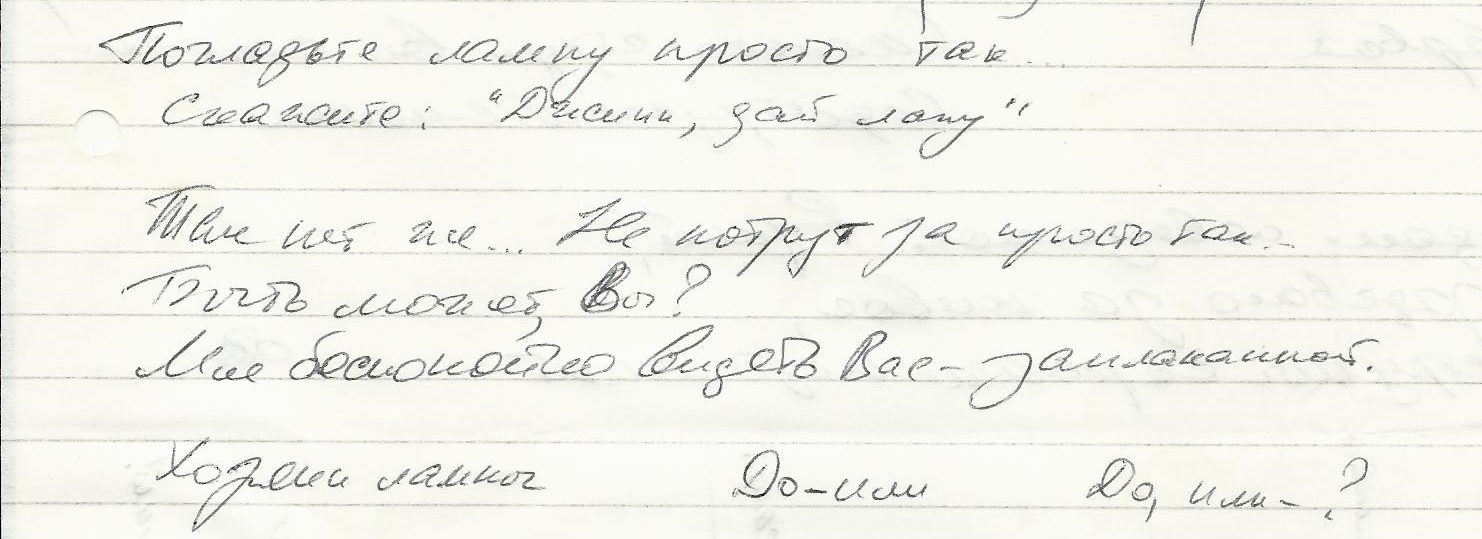 Погладьте лампу просто так...
Скажите: "Джинн, дай лапу"
Так нет же... Не потрут за просто так...
Быть может, Вы?
Мне беспокойно видеть Вас – заплаканной.
Хозяин лампы До-или До, или – ?